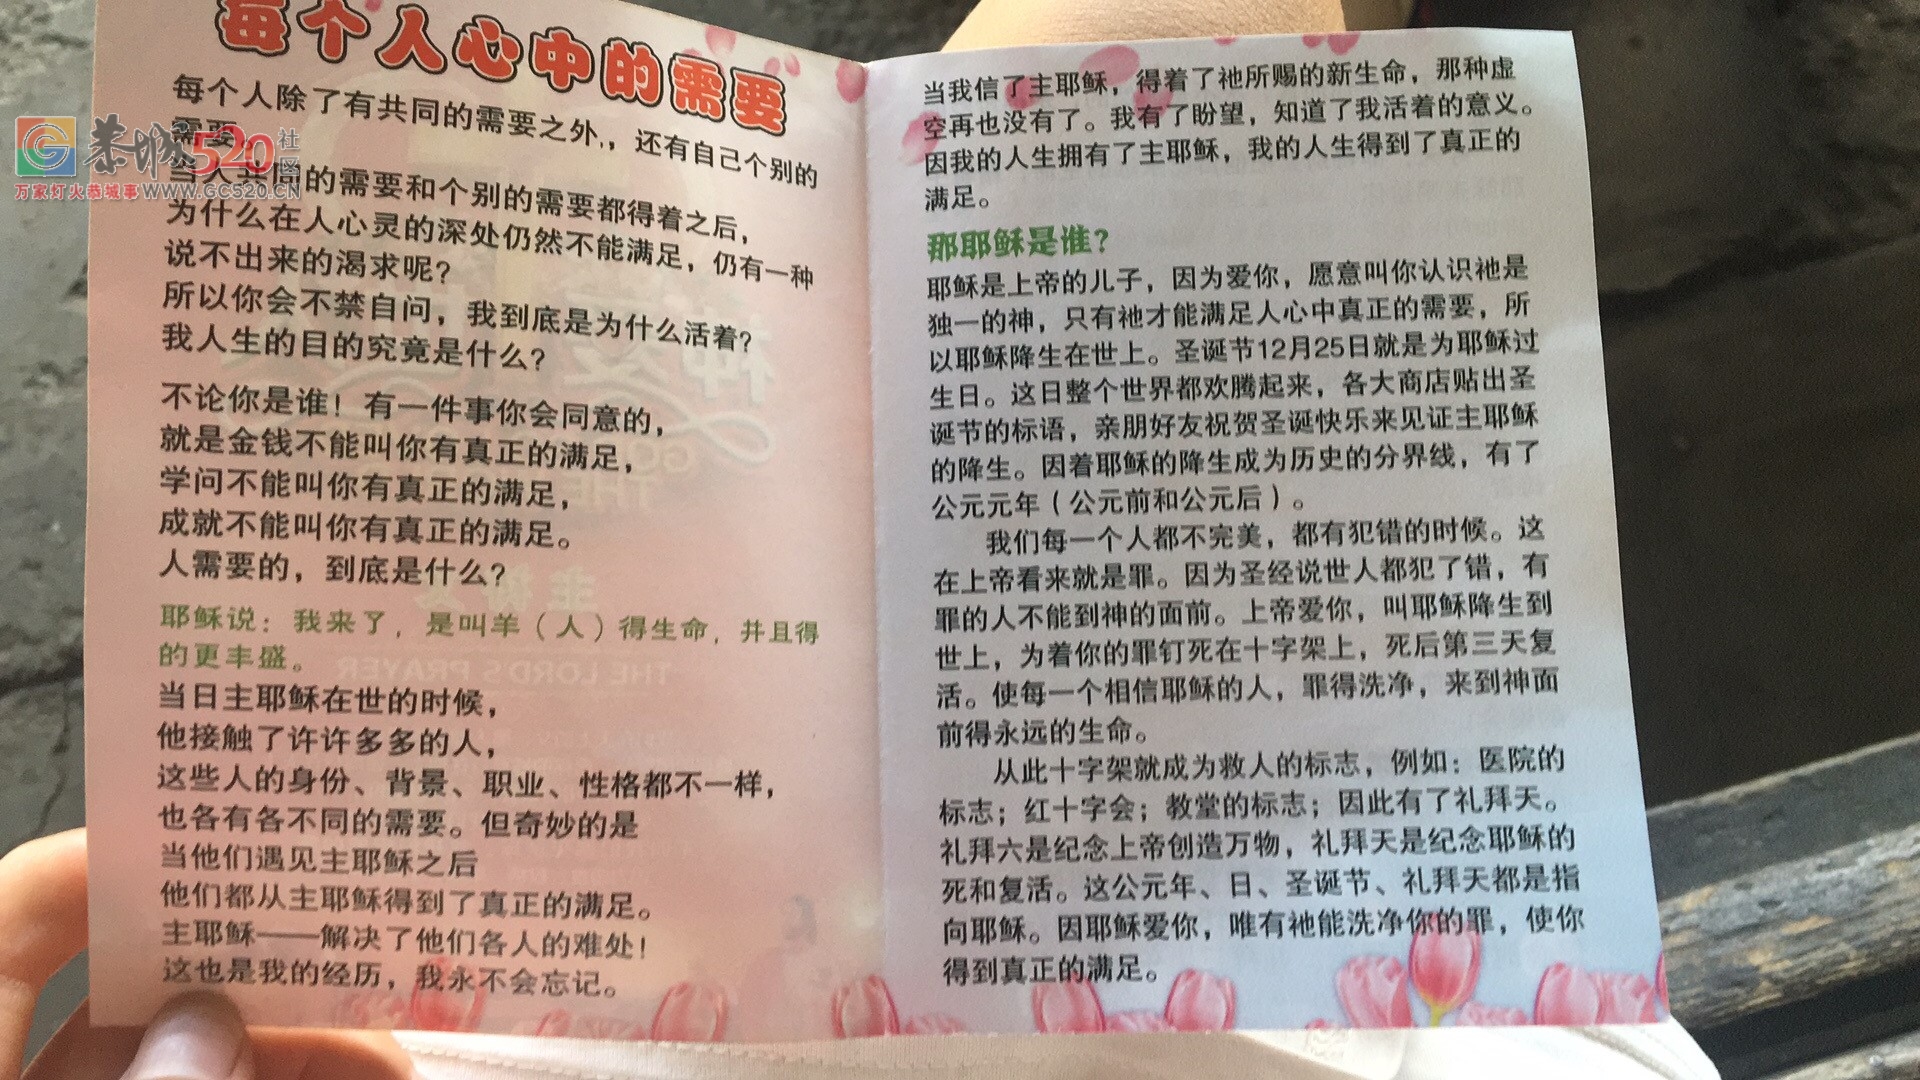 每个人心中的需要
每个人除了有共同的需要之外，，还有自己个别的
需要。
当人共同的需要和个别的需要都得着之后，
为什么在人心灵的深处仍然不能满足，仍有一种
说不出来的渴求呢？
所以你会不禁自问，我到底是为什么活着？
我人生的目的究竟是什么？
不论你是谁！有一件事你会同意的，
就是金钱不能叫你有真正的满足，
学问不能叫你有真正的满足，
成就不能叫你有真正的满足。
人需要的，到底是什么？
耶稣说：我来了，是叫羊（人）得生命，并且得
的更丰盛。
当日主耶稣在世的时候，
他接触了许许多多的人，
这些人的身份、背景、职业、性格都不一样，
也各有各不同的需要。但奇妙的是
当他们遇见主耶稣之后
他们都从主耶稣得到了真正的满足。
主耶稣——解决了他们各人的难处！
这也是我的经历，我永不会忘记。
当我信了主耶稣，得着了祂所赐的新生命，那种虚
空再也没有了。我有了盼望，知道了我活着的意义。
因我的人生拥有了主耶稣，我的人生得到了真正的
满足。
那耶稣是谁？
耶稣是上帝的儿子，因为爱你，愿意叫你认识祂是
独一的神，只有祂才能满足人心中真正的需要，所
以耶稣降生在世上。圣诞节12月25日就是为耶稣过
生日。这日整个世界都欢腾起来，各大商店贴出圣
诞节的标语，亲朋好友祝贺圣诞快乐来见证主耶稣
的降生。因着耶稣的降生成为历史的分界线，有了
公元元年（公元前和公元后）。
我们每一个人都不完美，都有犯错的时候。这
在上帝看来就是罪。因为圣经说世人都犯了错，有
罪的人不能到神的面前。上帝爱你，叫耶稣降生到
世上，为着你的罪钉死在十字架上，死后第三天复
活。使每一个相信耶稣的人，罪得洗净，来到神面
前得永远的生命。
从此十字架就成为救人的标志，例如：医院的
标志；红十字会；教堂的标志；因此有了礼拜天。
礼拜六是纪念上帝创造万物，礼拜天是纪念耶稣的
死和复活。这公元年、日、圣诞节、礼拜天都是指
向耶稣。因耶稣爱你，唯有祂能洗净你的罪，使你
得到真正的满足。
恭城520社区
万家灯火恭城事 WWW.GC520.CN
THE LORD'S PRAYER